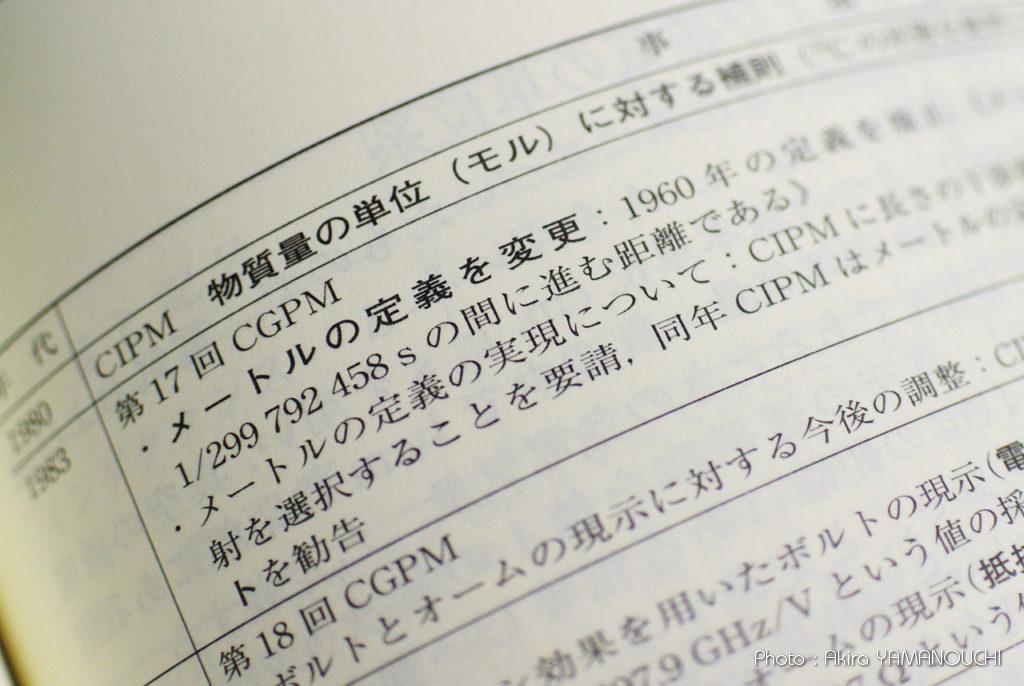 年 代
事
1980
CIPM 物質量の単位（モル）に対する補則
1983
第 17 回 CGPM
・メートルの定義を変更：1960 年の定義を廃止.
1/299 792 458 s の間に進む距離である〉
・メートルの定義の実現について：CIPM に長さの
射を選択することを要請，同年 CIPM はメートルの
トを勧告
第 18 回 CGPM
ボルトとオームの現示に対する今後の調整：CI
効果を用いたボルトの現示(電
97.9 GHz/V という値の採
オームの現示(抵抗
Ω という
Photo : Akira YAMANOUCHI